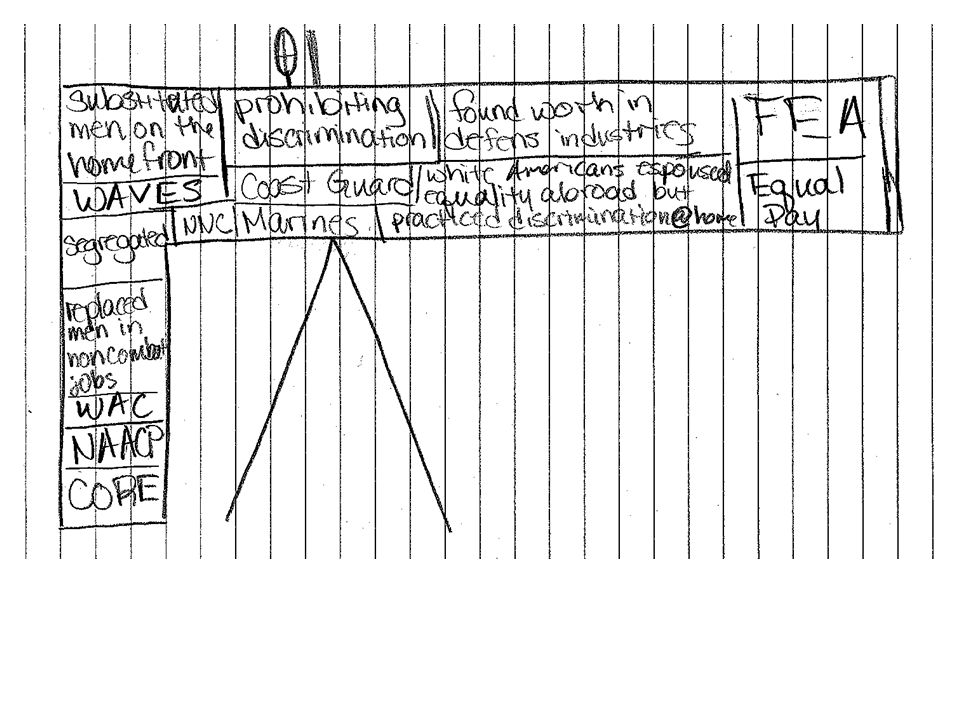 substituted
men on the
homefront
WAVES
segregated
replaced
men in
noncombat
jobs
WAC
NAACP
CORE
NNC
prohibiting
discrimination
Coast Guard
Marines
found worth in
defens industries
white Americans espoused
equality aboroad but
practiced discrimination@home
FEA
Equal
Pay